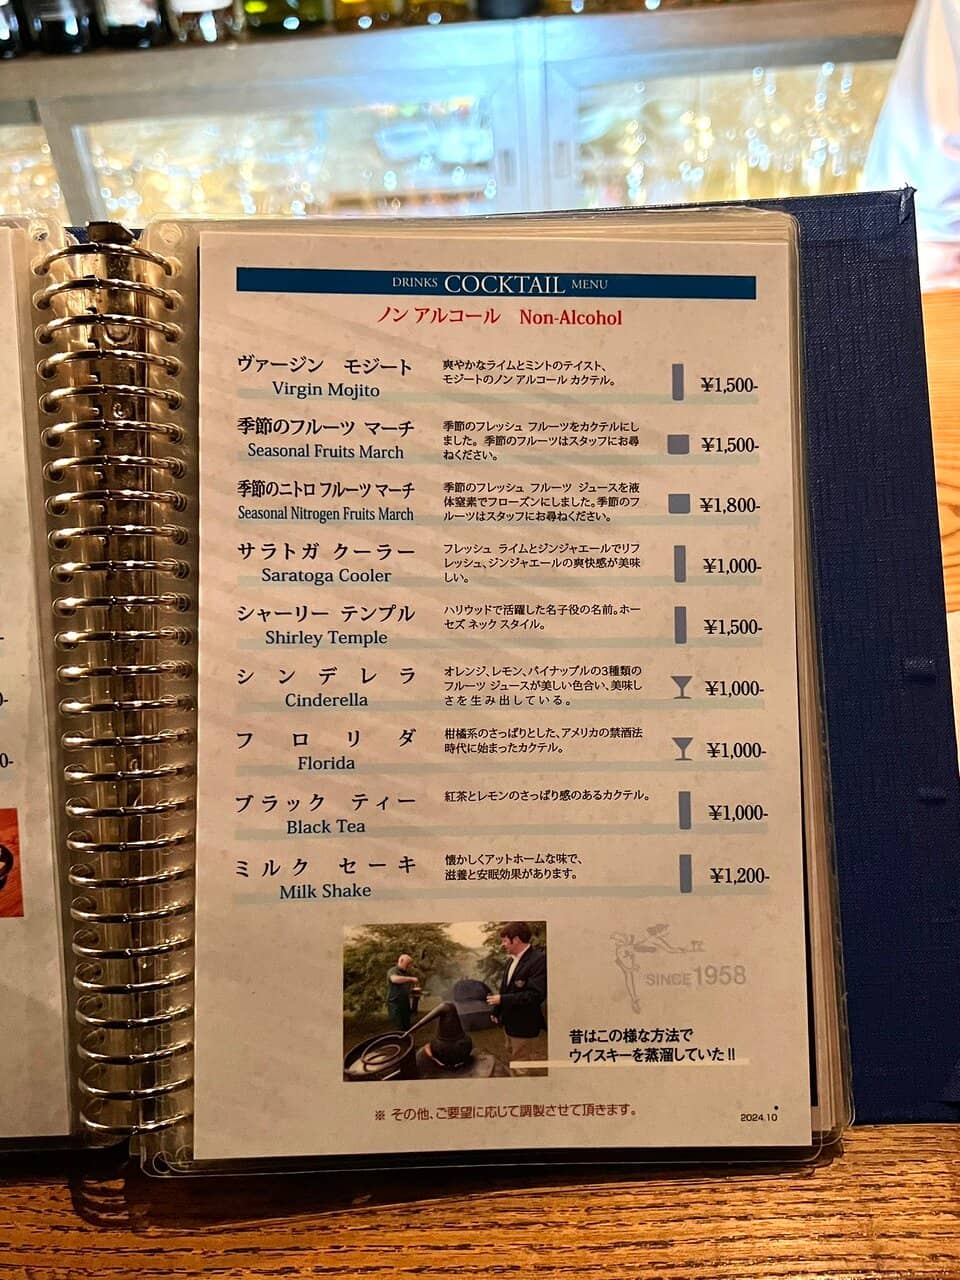 DRINKS COCKTAIL MENU
ノン アルコール Non-Alcohol
ヴァージン モジート
Virgin Mojito
爽やかなライムとミントのテイスト、
モジートのノン アルコール カクテル。
¥1,500-
季節のフルーツ マーチ
Seasonal Fruits March
季節のフレッシュ フルーツをカクテルにし
ました。季節のフルーツはスタッフにお尋
ねください。
¥1,500-
季節のニトロ フルーツ マーチ
Seasonal Nitrogen Fruits March
季節のフレッシュ フルーツ ジュースを液
体窒素でフローズンにしました。季節のフ
ルーツはスタッフにお尋ねください。
¥1,800-
サラトガ クーラー
Saratoga Cooler
フレッシュ ライムとジンジャエールでリフ
レッシュ、ジンジャエールの爽快感が美味
しい。
¥1,000-
シャーリー テンプル
Shirley Temple
ハリウッドで活躍した名子役の名前。ホー
セズ ネック スタイル。
¥1,500-
シンデレラ
Cinderella
オレンジ、レモン、パイナップルの3種類の
フルーツ ジュースが美しい色合い、美味し
さを生み出している。
¥1,000-
フロリダ
Florida
柑橘系のさっぱりとした、アメリカの禁酒法
時代に始まったカクテル。
¥1,000-
ブラック ティー
Black Tea
紅茶とレモンのさっぱり感のあるカクテル。
¥1,000-
ミルク セーキ
Milk Shake
懐かしくアットホームな味で、
滋養と安眠効果があります。
¥1,200-
SINCE 1958
昔はこの様な方法で
ウイスキーを蒸溜していた!!
※ その他、ご要望に応じて調製させて頂きます。
2024.10